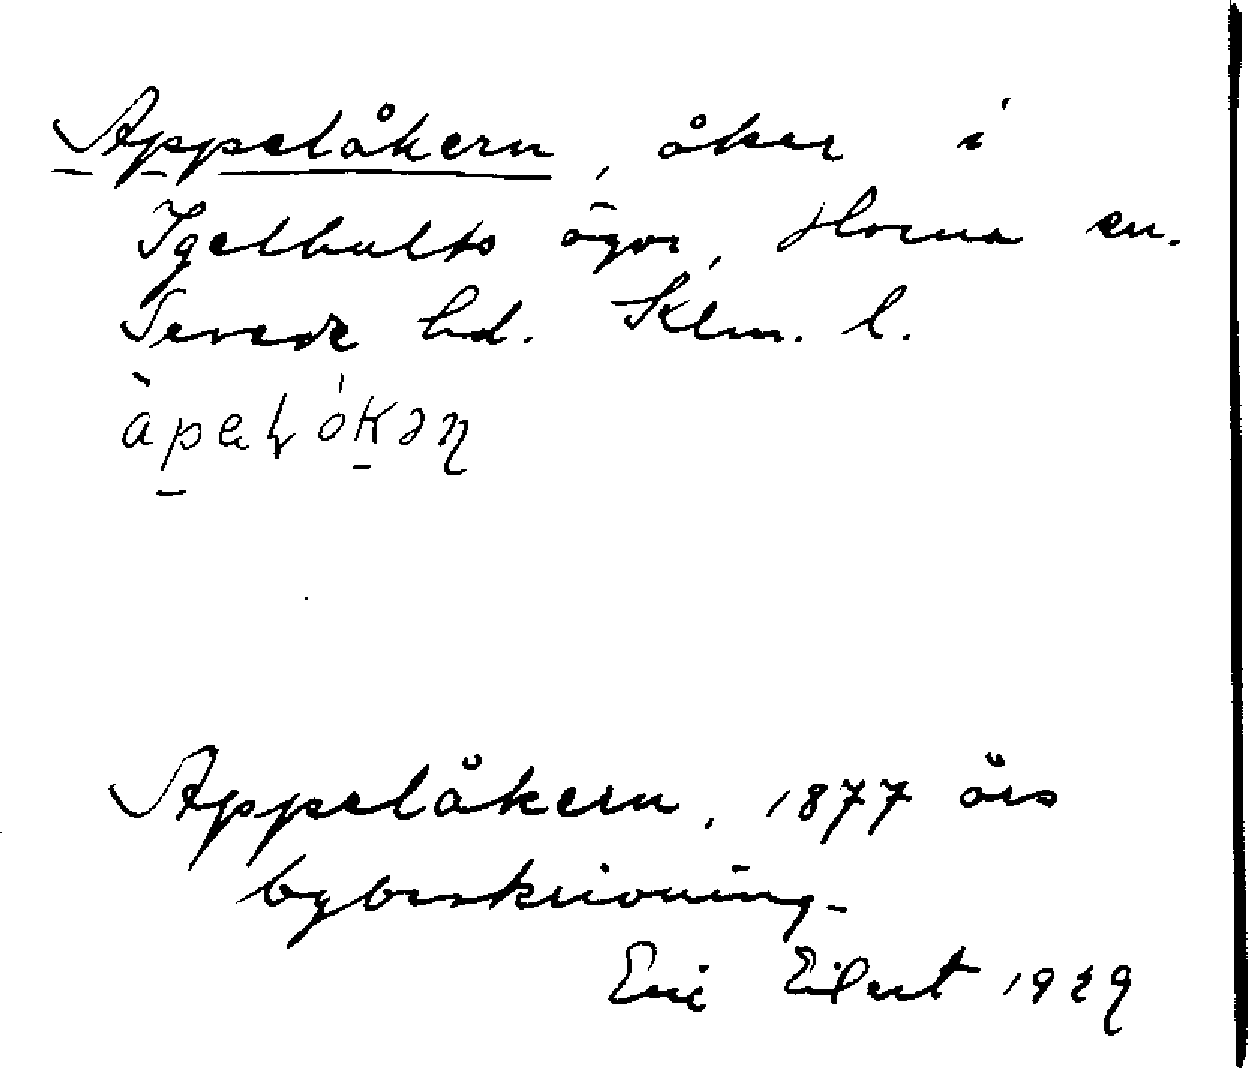 Appelåkern, åker i
Igelhults ägor, Horna sn.
Sevede hd. Klm. l.
Appelåkern, 1877 års
bybeskrivning.
Eric Eilert 1929